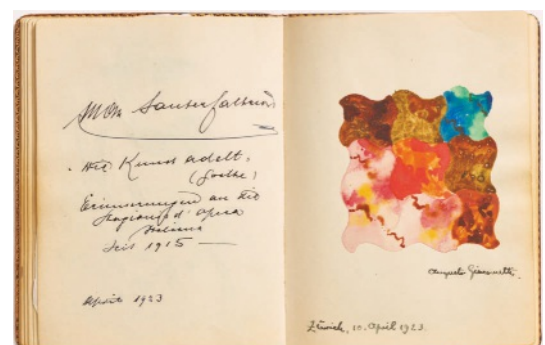 Die Kunst adelt.
(Goethe)
Erinnerungen an die
Stagione d'opera
Italiana
seit 1915 —
April 1923
Augusto Giacometti.
Zürich, 10. April 1923.